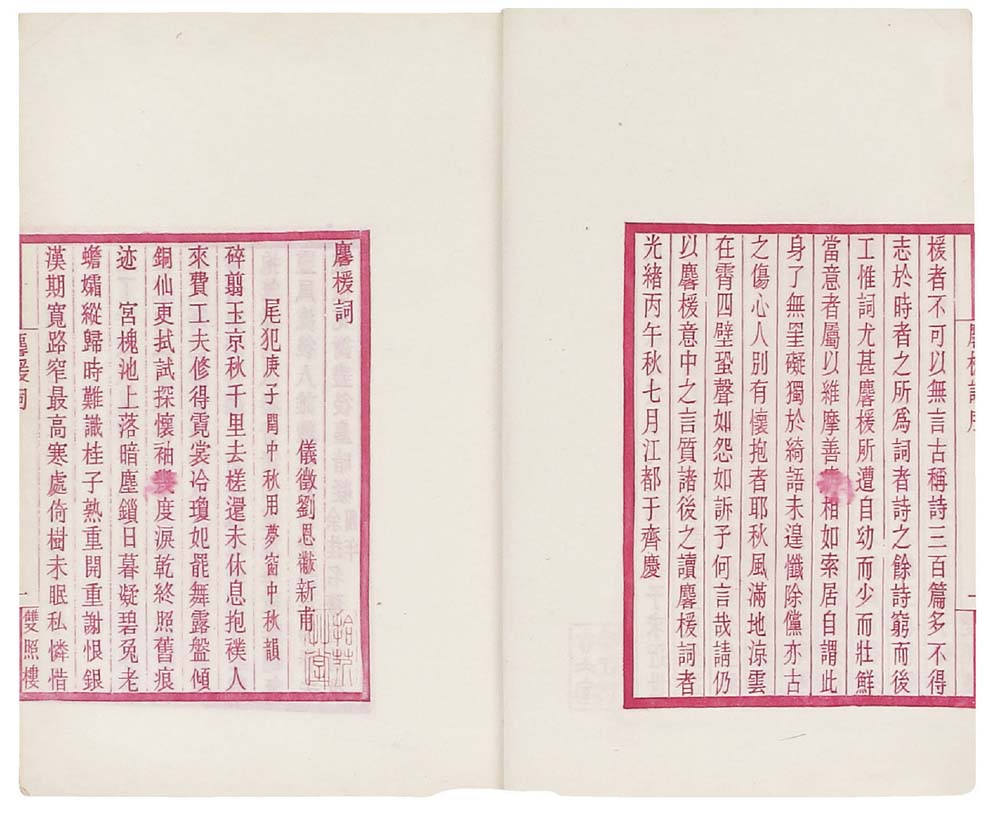 楥者不可以無言古稱詩三百篇多不得
志於時者之所爲詞者詩之餘詩窮而後
工惟詞尤甚麐楥所遭自幼而少而壯鮮
當意者屬以維摩善相如索居自謂此
身了無罣礙獨於綺語未遑懺除儻亦古
之傷心人別有懷抱者耶秋風滿地涼雲
在霄四壁蛩聲如怨如訴予何言哉請仍
以麐楥意中之言質諸後之讀麐楥詞者
光緒丙午秋七月江都于齊慶
麐楥詞
儀徵劉恩黻新甫
尾犯庚子閏中秋用夢窗中秋韻
碎翦玉京秋千里去槎還未休息抱襆人
來費工夫修得霓裳冷瓊妃罷舞露盤傾
銅仙更拭試探懷袖幾度淚乾終照舊痕
迹 宮槐池上落暗塵鎖日暮凝碧兔老
蟾孀縱歸時難識桂子熟重開重謝恨銀
漢期寬路窄最高寒處倚樹未眠私憐惜
麐楥詞
一
雙照樓